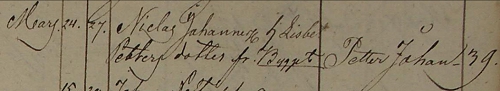 Mars. 24. 27. Niclas Johannes & h Lisbet
Petters dotter fr. Bryggt Petter Johan 39.